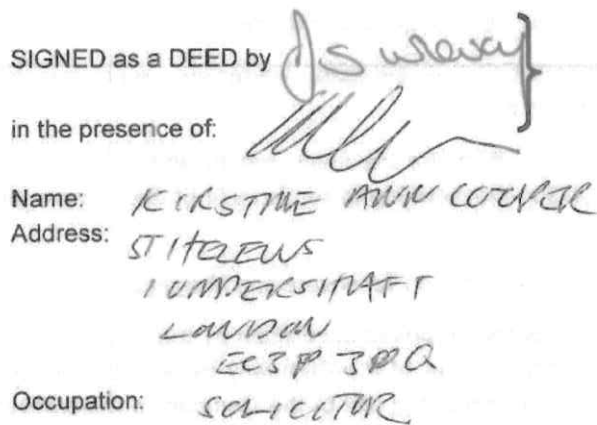 SIGNED as a DEED by
in the presence of:
Name: KIRSTINE ANN COOPER
Address: ST HELENS
1 UNDERSHAFT
LONDON
EC3P 3DQ
Occupation: SOLICITOR